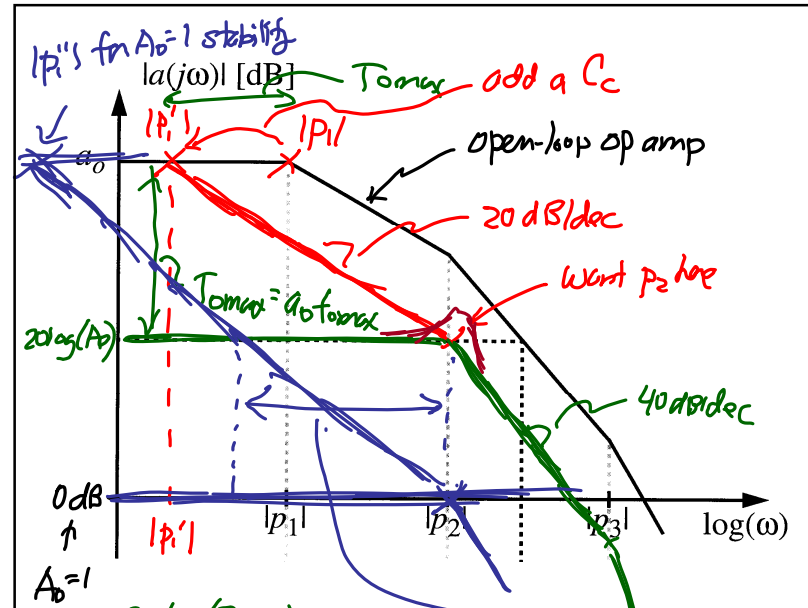 |p₁''| for A₀=1 stability
|a(jω)| [dB]
T₀max
add a Cc
|p₁'|
|p₁|
open-loop op amp
a₀
20 dB/dec
want p₂ here
T₀max = a₀f₀max
20log(A₀)
40dB/dec
0dB
|p₁'|
|p₁|
|p₂|
|p₃|
log(ω)
A₀=1